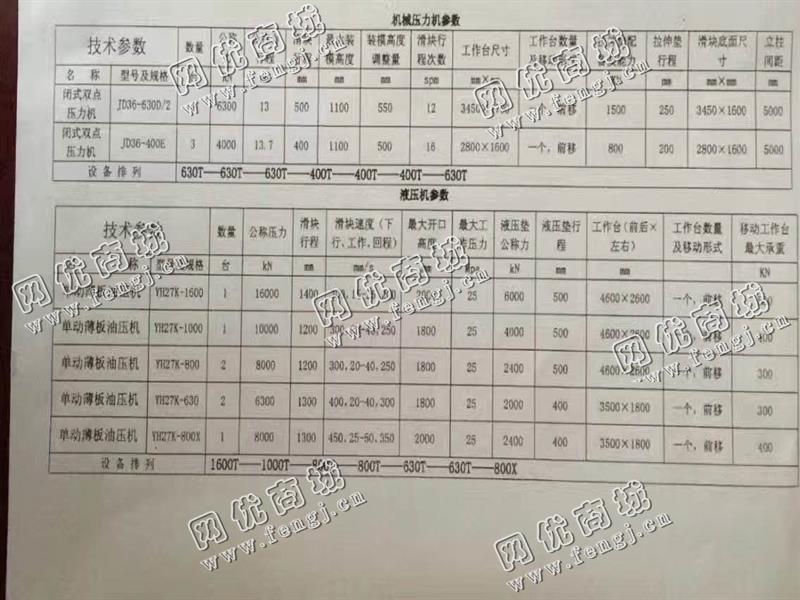 机械压力机参数
技术参数 数量 公称 滑块 最大装模高度 装模高度调整量 滑块行程次数 工作台尺寸 工作台数量 拉伸垫行程 滑块底面尺寸 立柱间距
名 称 型号及规格 kN mm mm mm spm mm× mm mm×mm mm
闭式双点压力机 JD36-630D/2 6300 13 500 1100 550 12 3450 个,前移 1500 250 3450×1600 5000
闭式双点压力机 JD36-400E 3 4000 13.7 400 1100 500 16 2800×1600 一个,前移 800 200 2800×1600 5000
设备排列 630T—630T—630T—400T—400T—400T—630T
液压机参数
技术参数 数量 公称压力 滑块行程 滑块速度(下行,工作,回程) 最大开口高度 最大工作压力 液压垫公称力 液压垫行程 工作台(前后×左右) 工作台数量及移动形式 移动工作台最大承重
称 规格 台 kN mm mm/s mm kN mm mm KN
单动薄板油压机 YH27K-1600 1 16000 1400 25 6000 500 4600×2600 一个,前移
单动薄板油压机 YH27K-1000 1 10000 1200 1800 25 4000 500 一个,前移
单动薄板油压机 YH27K-800 2 8000 1200 300,20-40,250 1800 25 2400 500 4600×2600 前移 300
单动薄板油压机 YH27K-630 2 6300 1300 400,20-40,300 1800 25 2000 400 3500×1800 一个,前移 300
单动薄板油压机 YH27K-800X 1 8000 1300 450,25-50,350 2000 25 2400 400 3500×1800 一个,前移 400
设备排列 1600T—1000T—800T—800T—630T—630T—800X
网优商城
www.fengj.cn
网优商城
www.fengj.cn
网优商城
www.fengj.cn
网优商城
www.fengj.cn
网优商城
www.fengj.cn
网优商城
www.fengj.cn